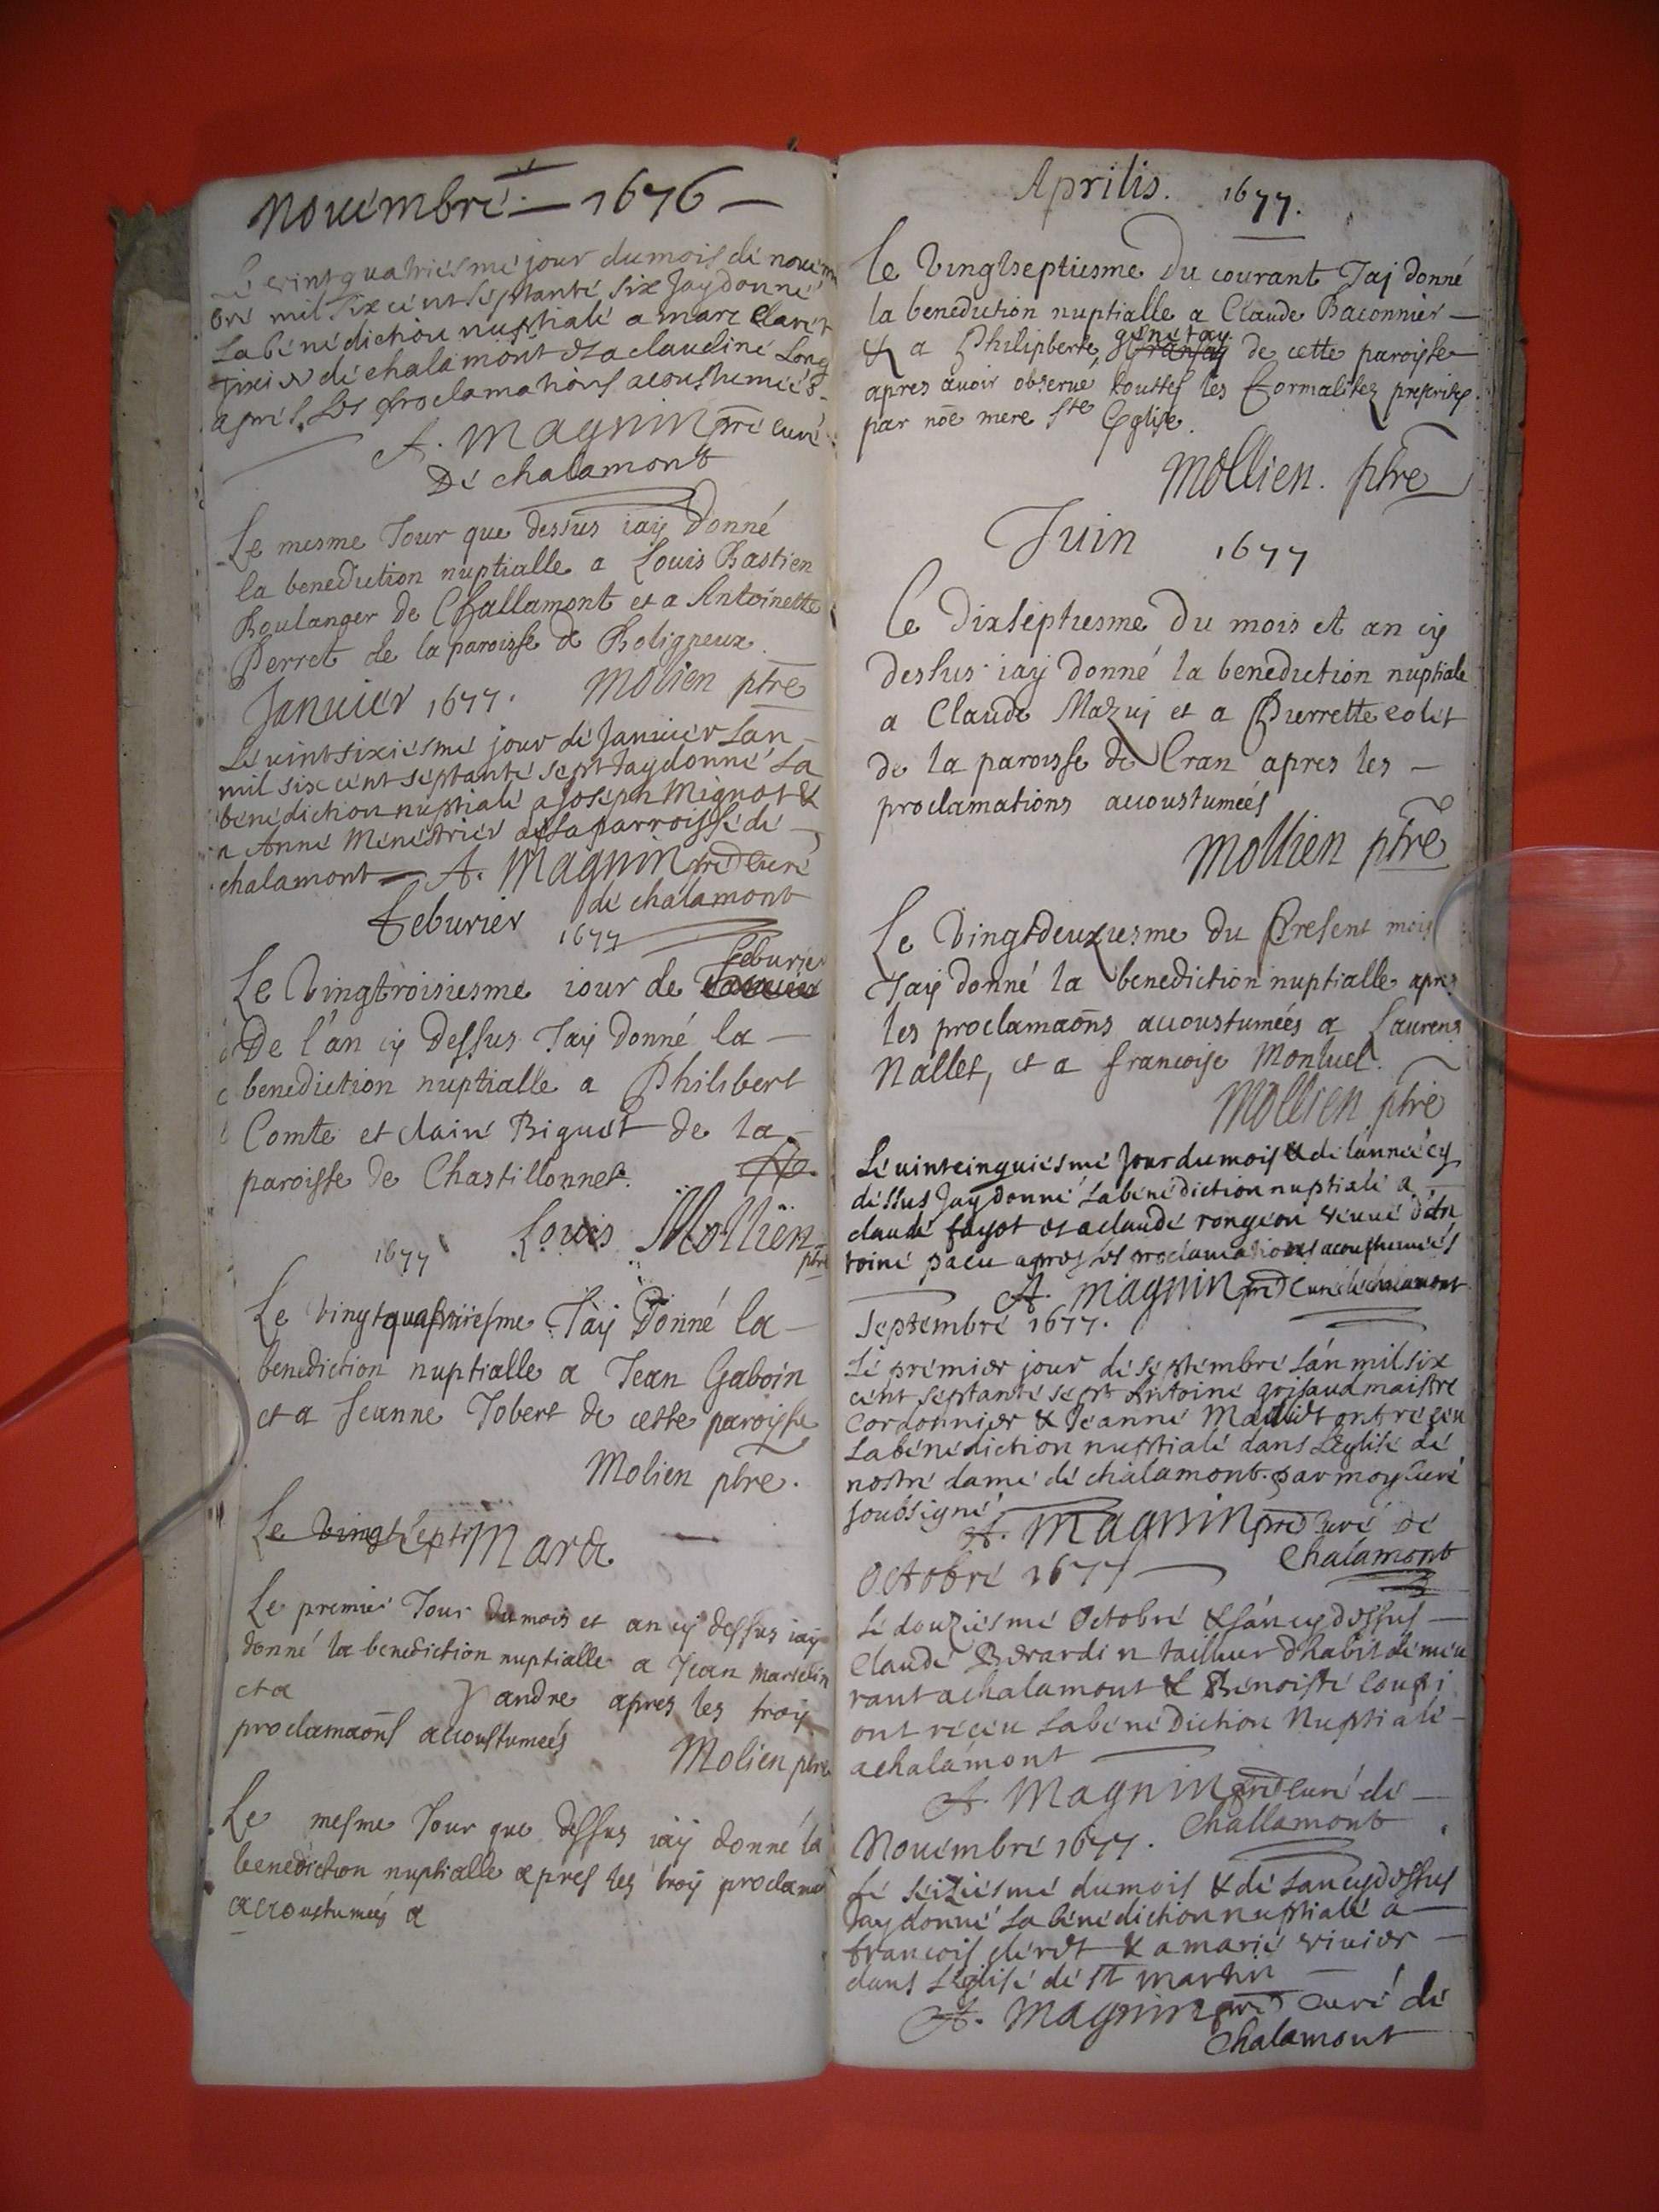 Nouembré 1676
Lé vint quatriésmé jour du mois dé nouem
bré mil six cént séptanté six Jay donné
la bénédiction nuptialé a marc Clarét
tixier dé chalamont et a claudiné Long
aprés les proclamations acoustumeés
A. Magnin pré curé
Dé chalamont
Le mesme Jour que dessus iaÿ Donné
la benediction nuptialle a Louis Bastien
Boulanger de Challamont et a Antoinette
Perret de la paroisse de Boligneux.
Molien ptre
Januier 1677.
Lé vint sixiésmé jour dé Januier Lan
mil six cént séptanté sept Jay donné La
bénédiction nuptialé a Joseph Mignot &
a Anné Ménéstrier de la parroissé dé
chalamont A. Magnin pré curé
dé chalamont
feburier 1677
feburier
Le Vingtroisiesme iour de
De l'an cÿ Dessus Jaÿ Donné la
benediction nuptialle a Philibert
Comte et clainé Biguét de la
paroisse de Chastillonnet.
Louis Mollien
ptre
1677
Le vingtquatriiesme Jaÿ Donné la
benediction nuptialle a Jean Gaboin
et a Jeanne Jobert de cette paroisse
Molien ptre.
Le vingtsépti Mars
Le premier Jour du mois et an cÿ dessus iaÿ
donné la benediction nuptialle a Jean Marselin
et a andre apres les troÿ
proclamaõns accoustumeés
Molien ptre
Le mesme Jour que dessus iaÿ donné la
benediction nuptialle apres les troÿ proclama
accoustumeés a
Aprilis. 1677.
Le Vingtseptiesme Du courant Jaj donné
la benediction nuptialle a Claude Baconnier
genetay
& a Philipberte de cette paroisse
apres auoir obserué touttes les formalitez prescrites
par nõe mere ste Eglise.
Mollien. ptre
Juin 1677
Le Dixseptiesme Du mois et an cÿ
dessus iaÿ donné la benediction nuptiale
a Claude Mazuÿ et a Pierrette colét
de la paroisse de Cran apres les
proclamations accoustumeés
Mollien ptre
Le Vingtdeuxiesme du Present mois
Jaÿ donné la benediction nuptialle apres
les proclamaõns accoustumées a Laurens
Nallet, et a francoise Montuel.
Mollien ptre
Lé vintcinquiésmé Jour du mois & dé lanneé cy
déssus Jay donné la bénédiction nuptialé a
claudé fayot et a claudé rongeon véuué dAn
toiné pacu apres les proclamations acoustumeés
A. Magnin pré curé dé chalamont
Séptémbré 1677.
Lé prémier jour dé séptémbré Lán mil six
cént séptanté sépt Antoiné grisaud maistre
Cordonnier & Jéanné Maillet ont récéu
La bénédiction nuptialé dans Léglisé dé
nostré damé dé chalamont par moy curé
soubsigné
A. Magnin pré curé Dé
chalamont
Octobré 1677
Lé douziésmé Octobré & lán cy dessus
Claudé Berardin tailleur dhabit démeu
rant a chalamont & Bénoisté Coupi
ont récéu La bénédiction Nuptialé
a chalámont
A. Magnin pré curé dé
Challamont
Nouémbré 1677.
Lé séiziésmé du mois & dé Lan cy dessus
Jay donné La bénédiction nuptialé a
francois clérét & a marié viuier
dans Léglisé dé St martin
A. Magnin pré Curé dé
Chalamont